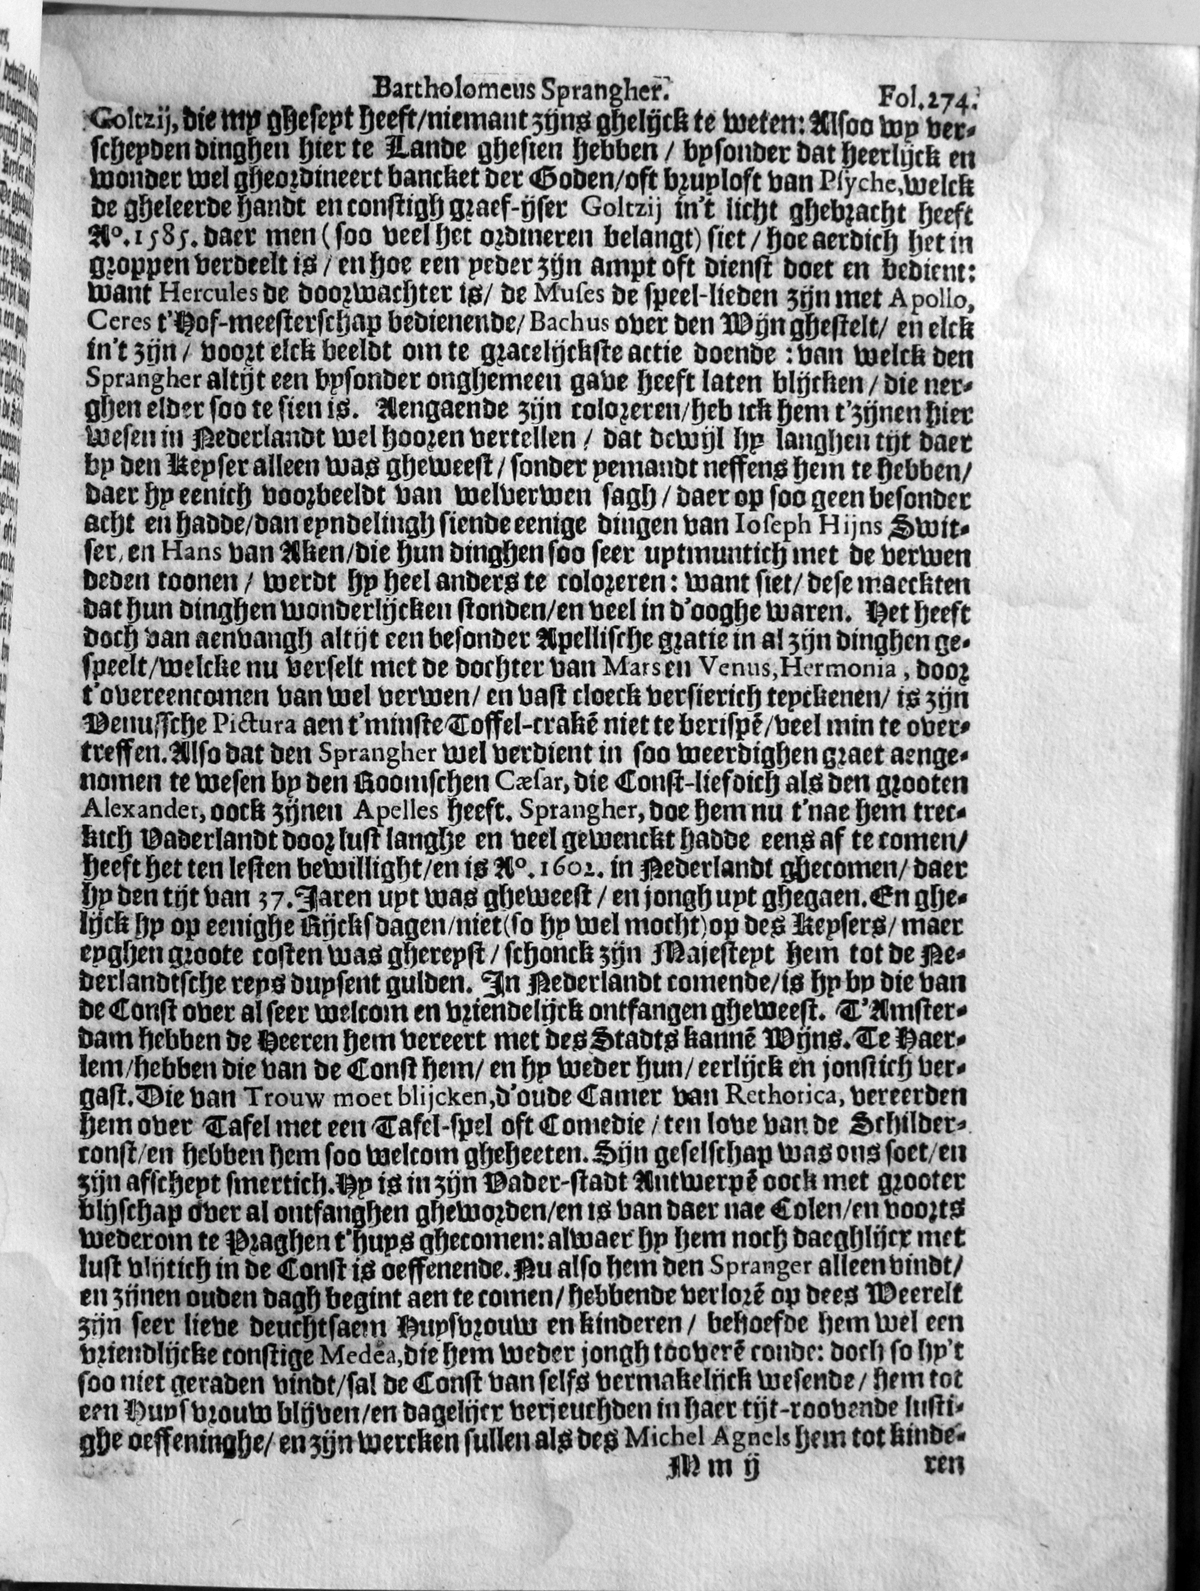 Bartholomeus Sprangher. Fol.274.
Goltzij, die my gheseyt heeft/niemant zijns ghelijck te weten: Alsoo wy ver-
scheyden dinghen hier te Lande ghesien hebben / bysonder dat heerlijck en
wonder wel gheordineert bancket der Goden/oft bruyloft van Psyche, welck
de gheleerde handt en constigh graef-ijser Goltzij in't licht ghebracht heeft
Aº. 1585. daer men (soo veel het ordineren belangt) siet / hoe aerdich het in
groppen verdeelt is / en hoe een yeder zijn ampt oft dienst doet en bedient:
want Hercules de doorwachter is/ de Muses de speel-lieden zijn met Apollo,
Ceres t'Hof-meesterschap bedienende/ Bachus over den Wijn ghestelt/ en elck
in't zijn / voort elck beeldt om te gracelijckste actie doende : van welck den
Sprangher altijt een bysonder onghemeen gave heeft laten blijcken / die ner-
ghen elder soo te sien is. Aengaende zijn coloreren/heb ick hem t'zijnen hier
wesen in Nederlandt wel hooren vertellen / dat dewijl hy langhen tijt daer
by den Keyser alleen was gheweest / sonder yemandt neffens hem te hebben/
daer hy eenich voorbeeldt van welverwen sagh / daer op soo geen besonder
acht en hadde/dan eyndelingh siende eenige dingen van Ioseph Hijns Swit-
ser, en Hans van Aken/die hun dinghen soo seer uytmuntich met de verwen
deden toonen / werdt hy heel anders te coloreren: want siet/ dese maeckten
dat hun dinghen wonderlijcken stonden/en veel in d'ooghe waren. Het heeft
doch van aenvangh altijt een besonder Apellische gratie in al zijn dinghen ge-
speelt/welcke nu verselt met de dochter van Mars en Venus, Hermonia, door
t'overeencomen van wel verwen/ en vast cloeck versierich teyckenen/ is zijn
Venussche Pictura aen t'minste Toffel-crakē niet te berispē/veel min te over-
treffen. Also dat den Sprangher wel verdient in soo weerdighen graet aenge-
nomen te wesen by den Roomschen Cæsar, die Const-liefdich als den grooten
Alexander, oock zijnen Apelles heeft. Sprangher, doe hem nu t'nae hem trec-
kich Vaderlandt door lust langhe en veel gewenckt hadde eens af te comen/
heeft het ten lesten bewillight/en is Aº. 1602. in Nederlandt ghecomen/ daer
hy den tijt van 37. Jaren uyt was gheweest / en jongh uyt ghegaen. En ghe-
lijck hy op eenighe Rijcksdagen/niet (so hy wel mocht) op des Keysers/ maer
eyghen groote costen was ghereyst / schonck zijn Majesteyt hem tot de Ne-
derlandtsche reys duysent gulden. In Nederlandt comende/is hy by die van
de Const over al seer welcom en vriendelijck ontfangen gheweest. T'Amster-
dam hebben de Heeren hem vereert met des Stadts kannē Wijns. Te Haer-
lem/hebben die van de Const hem/ en hy weder hun/ eerlijck en jonstich ver-
gast. Die van Trouw moet blijcken, d'oude Camer van Rethorica, vereerden
hem over Tafel met een Tafel-spel oft Comedie / ten love van de Schilder-
const/en hebben hem soo welcom gheheeten. Sijn geselschap was ons soet/en
zijn afscheyt smertich. Hy is in zijn Vader-stadt Antwerpē oock met grooter
blijschap over al ontfanghen gheworden/en is van daer nae Colen/en voorts
wederom te Praghen t'huys ghecomen: alwaer hy hem noch daeghlijcx met
lust vlijtich in de Const is oeffenende. Nu also hem den Spranger alleen vindt/
en zijnen ouden dagh begint aen te comen/ hebbende verlorē op dees Weerelt
zijn seer lieve deuchtsaem Huysvrouw en kinderen / behoefde hem wel een
vriendlijcke constige Medēa, die hem weder jongh tooverē conde: doch so hy't
soo niet geraden vindt/sal de Const van selfs vermakelijck wesende/ hem tot
een Huysvrouw blijven/en dagelijcx verjeuchden in haer tijt-roovende lusti-
ghe oeffeninghe/ en zijn wercken sullen als des Michel Agnels hem tot kinde-
M m ij ren